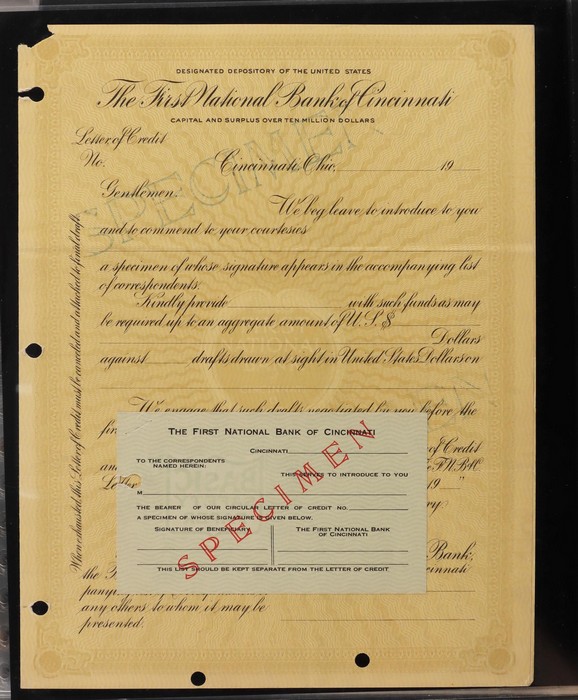 DESIGNATED DEPOSITORY OF THE UNITED STATES
The First National Bank of Cincinnati
CAPITAL AND SURPLUS OVER TEN MILLION DOLLARS
Letter of Credit
No.
Cincinnati, Ohio, 19
Gentlemen:
We beg leave to introduce to you
and to commend to your courtesies
a specimen of whose signature appears in the accompanying list
of correspondents.
Kindly provide with such funds as may
be required up to an aggregate amount of U.S.$
Dollars
against drafts drawn at sight in United States Dollars on
We engage that such drafts negotiated by you before the
of Credit
Letter 19 "
Bank,
the
any others to whom it may be
presented.
When exhausted, this Letter of Credit must be canceled and attached to final draft.
SPECIMEN
THE FIRST NATIONAL BANK OF CINCINNATI
CINCINNATI
TO THE CORRESPONDENTS
NAMED HEREIN:
THIS SERVES TO INTRODUCE TO YOU
M
THE BEARER OF OUR CIRCULAR LETTER OF CREDIT NO.
A SPECIMEN OF WHOSE SIGNATURE IS GIVEN BELOW.
SIGNATURE OF BENEFICIARY
THE FIRST NATIONAL BANK
OF CINCINNATI
THIS LIST SHOULD BE KEPT SEPARATE FROM THE LETTER OF CREDIT
SPECIMEN